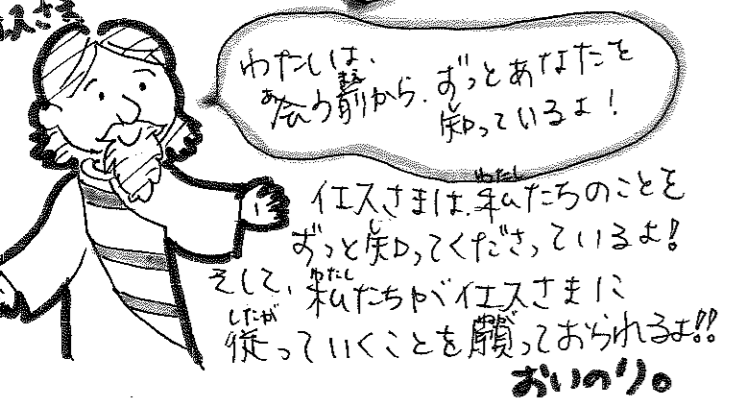 イエスさま
わたしは、
会う前から、ずっとあなたを
知っているよ!
イエスさまは、私たちのことを
ずっと知ってくださっているよ!
そして、私たちがイエスさまに
従っていくことを願っておられるよ!!
おいのり。